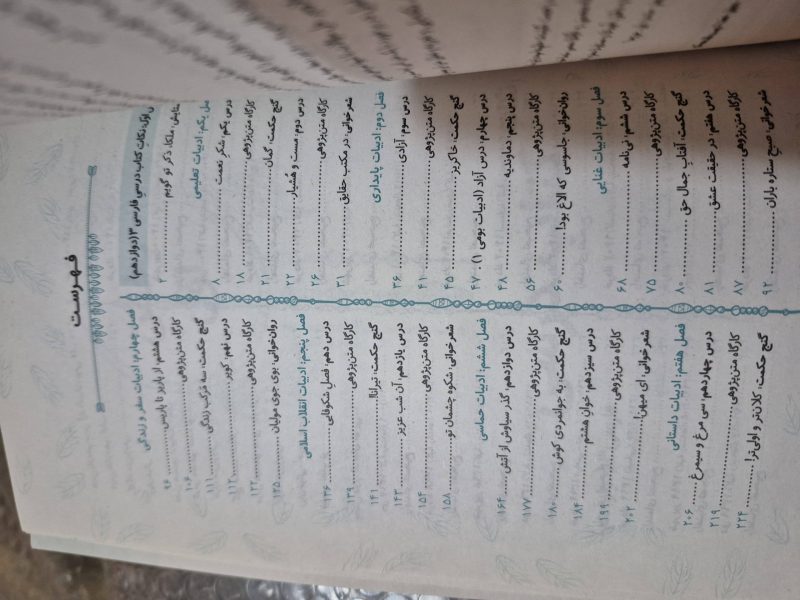 فهرست
نکات کتاب درسی فارسی ۳ (دوازدهم)
ستایش: ملکا، ذکر تو گویم ۲
فصل یکم: ادبیات تعلیمی
درس یکم: شکر نعمت ۸
کارگاه متن‌پژوهی ۱۸
گنج حکمت: گمان ۲۱
درس دوم: مست و هُشیار ۲۲
کارگاه متن‌پژوهی ۲۶
شعرخوانی: در مکتب حقایق ۳۱
فصل دوم: ادبیات پایداری
درس سوم: آزادی ۳۶
کارگاه متن‌پژوهی ۴۱
گنج حکمت: خاکریز ۴۵
درس چهارم: درس آزاد (ادبیات بومی ۱) ۴۷
درس پنجم: دماوندیه ۴۸
کارگاه متن‌پژوهی ۵۶
روان‌خوانی: جاسوسی که الاغ بود! ۶۰
فصل سوم: ادبیات غنایی
درس ششم: نی‌نامه ۶۸
کارگاه متن‌پژوهی ۷۵
گنج حکمت: آفتاب جمال حق ۸۰
درس هفتم: در حقیقت عشق ۸۱
کارگاه متن‌پژوهی ۸۷
شعرخوانی: صبح ستاره باران ۹۲
فصل چهارم: ادبیات سفر و زندگی
درس هشتم: از پاریز تا پاریس ۹۶
کارگاه متن‌پژوهی ۱۰۶
گنج حکمت: سه مَرکَب زندگی ۱۱۱
درس نهم: کویر ۱۱۲
کارگاه متن‌پژوهی ۱۲۲
روان‌خوانی: بوی جوی مولیان ۱۲۵
فصل پنجم: ادبیات انقلاب اسلامی
درس دهم: فصل شکوفایی ۱۳۶
کارگاه متن‌پژوهی ۱۳۹
گنج حکمت: تیرانا! ۱۴۱
درس یازدهم: آن شب عزیز ۱۴۳
کارگاه متن‌پژوهی ۱۵۴
شعرخوانی: شکوه چشمان تو ۱۵۸
فصل ششم: ادبیات حماسی
درس دوازدهم: گذر سیاوش از آتش ۱۶۴
کارگاه متن‌پژوهی ۱۷۷
گنج حکمت: به جوانمردی کوش ۱۸۰
درس سیزدهم: خوان هشتم ۱۸۴
کارگاه متن‌پژوهی ۱۹۹
شعرخوانی: ای میهن! ۲۰۲
فصل هفتم: ادبیات داستانی
درس چهاردهم: سی مرغ و سیمرغ ۲۰۶
کارگاه متن‌پژوهی ۲۱۹
گنج حکمت: کلان‌تر و اولی‌تر! ۲۲۴